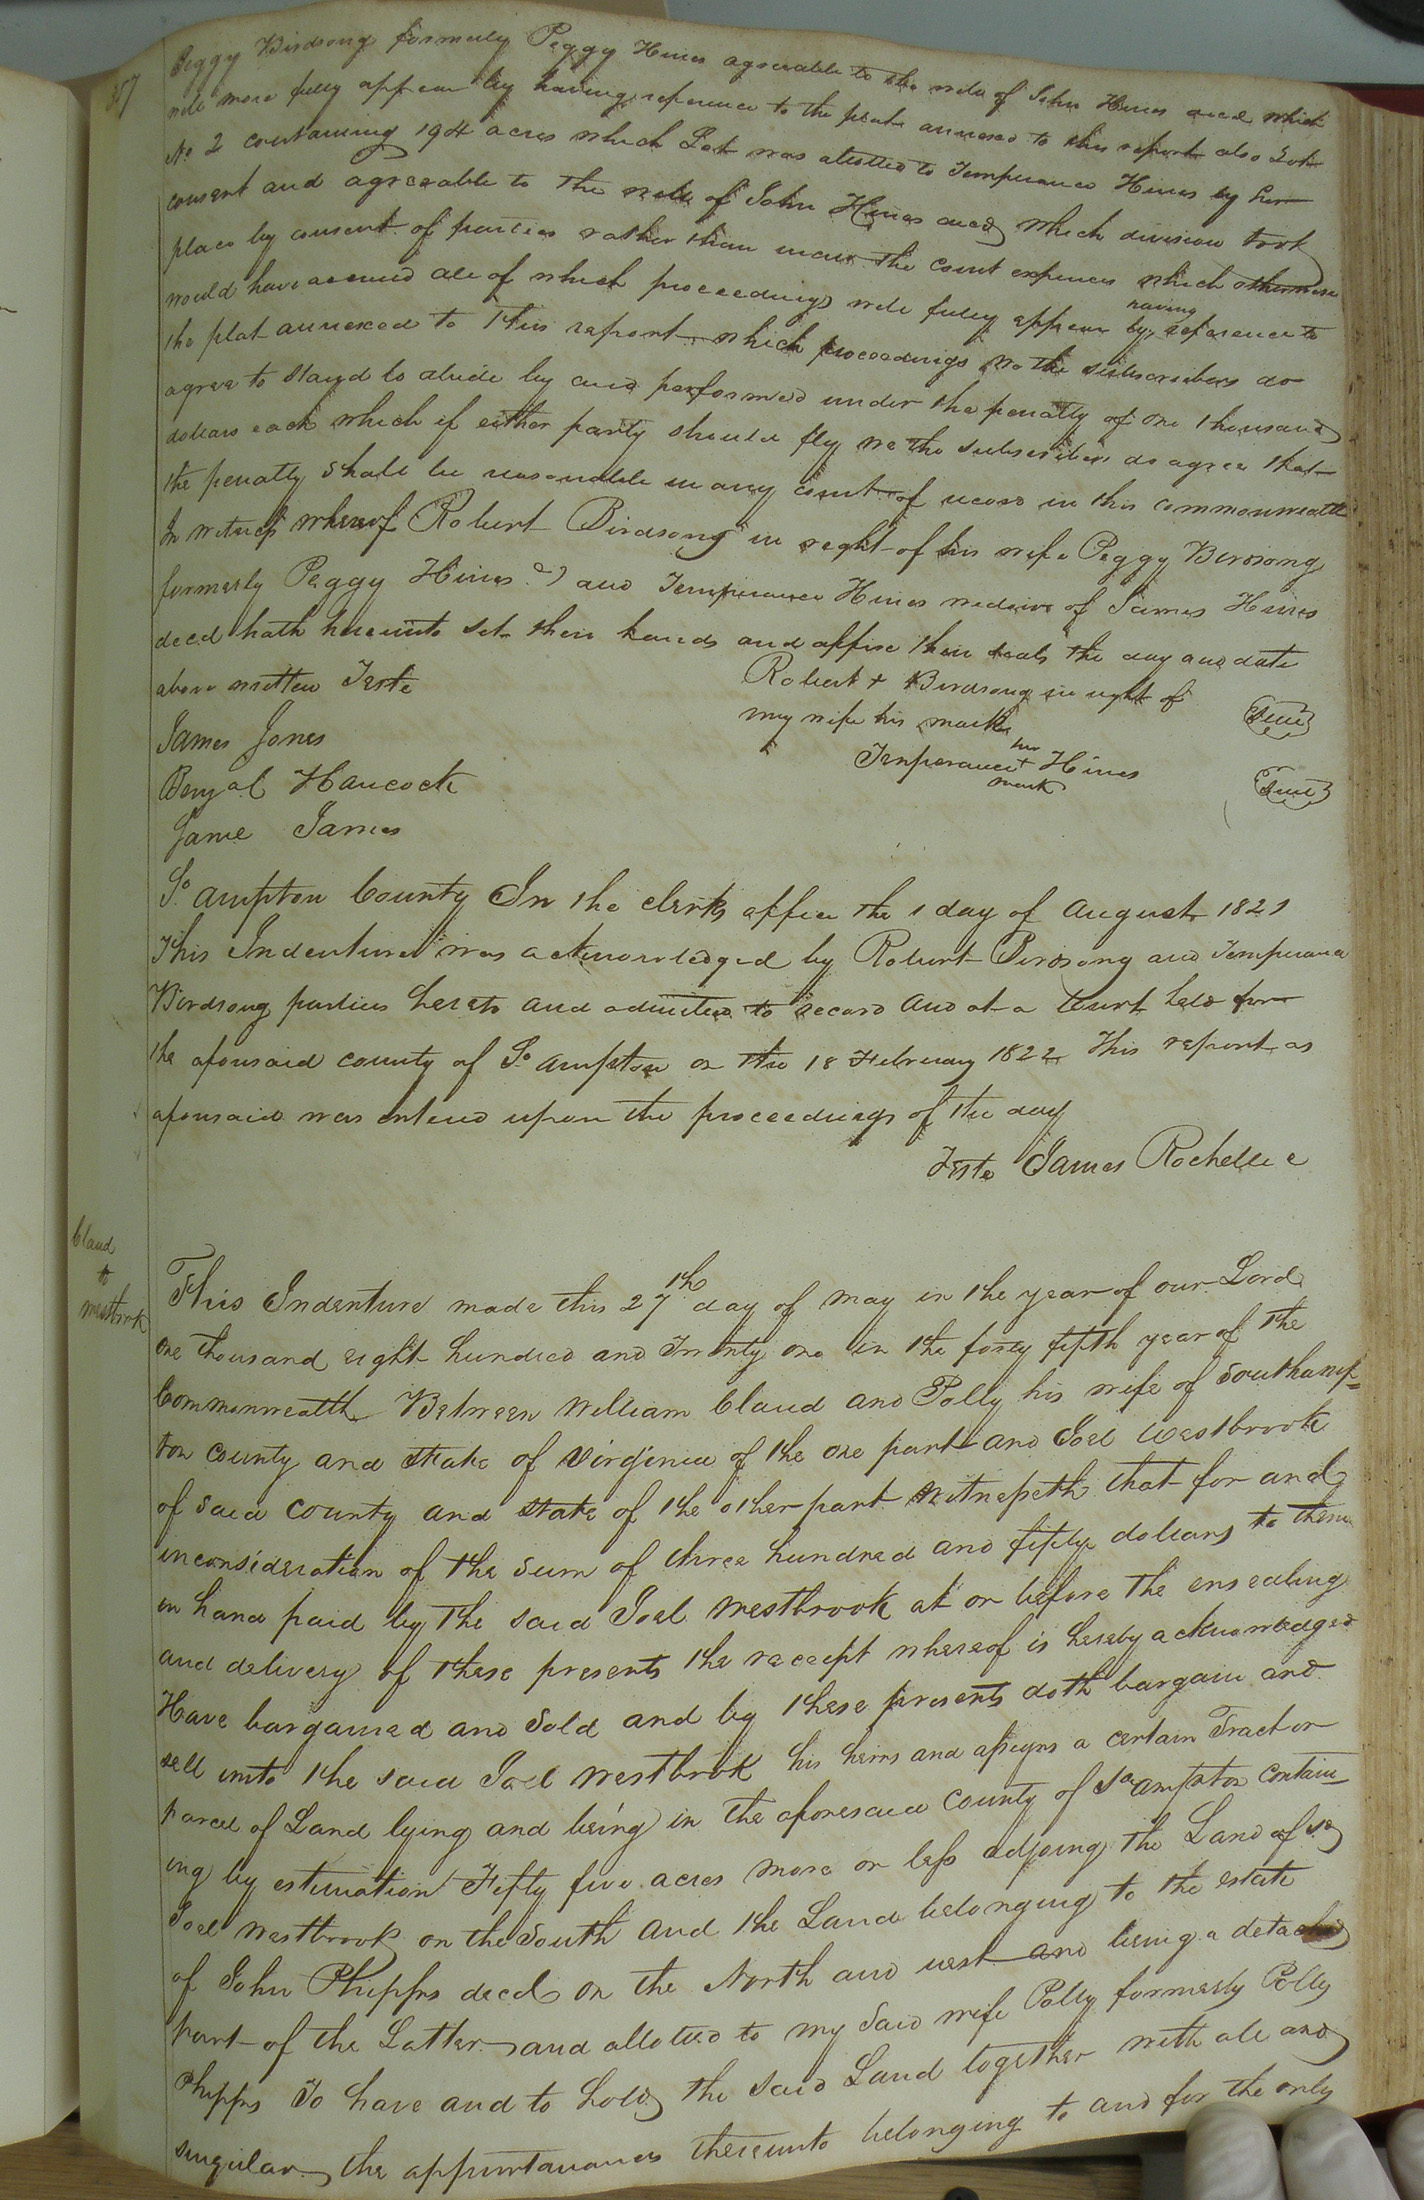 357
Peggy Birdsong formerly Peggy Hines agreeable to the will of John Hines decd which
will more fully appear by having reference to the plat annexed to this report also Lot
No 2 containing 194 acres which Lot was allotted to Temperance Hines by her
consent and agreeable to the will of John Hines decd which division took
place by consent of parties rather than incur the court expences which otherwise
would have accrued all of which proceedings will fully appear by having reference to
the plat annexed to this report which proceedings we the subscribers do
agree to stand to abide by and performed under the penalty of one thousand
dollars each which if either party should fly we the subscribers do agree that
the penalty shall be reasonable in any court of record in this commonwealth
In witness whereof Robert Birdsong in right of his wife Peggy Birdsong
formerly Peggy Hines and Temperance Hines widow of James Hines
decd hath hereunto set their hands and affixe their seals the day and date
above written Teste
Robert + Birdsong in right of Seal
my wife his mark
James Jones
Temperance her + mark Hines Seal
Benja l Hancock
Jane James
So. ampton County In the clerks office the 1 day of August 1821
This Indenture was acknowledged by Robert Birdsong and Temperance
Birdsong parties hereto and admitted to record and at a Court held for
the aforesaid county of So. ampton on the 18 February 1822 This report as
aforesaid was entered upon the proceedings of the day
Teste James Rochelle c
Claud
to
Westbrook
This Indenture made this 27th day of may in the year of our Lord
one thousand eight hundred and Twenty one in the forty fifth year of the
Commonwealth Between William Claud and Polly his wife of Southamp=
ton county and State of Virginia of the one part and Joel Westbrook
of said county and state of the other part Witnesseth that for and
inconsideration of the sum of three hundred and fifty dollars to them
in hand paid by the said Joel Westbrook at or before the ensealing
and delivery of these presents the receipt whereof is hereby acknowledged
Have bargained and sold and by these presents doth bargain and
sell unto the said Joel Westbrook his heirs and assigns a certain Tract or
parcel of Land lying and being in the aforesaid county of So ampton contain
ing by estimation Fifty five acres more or less adjoing the Land of sd
Joel Westbrook on the South and the Land belonging to the estate
of John Phipps decd on the North and west and being a detached
part of the Latter and allotted to my said wife Polly formerly Polly
Phipps To have and to hold the said Land together with all and
singular the appurtanances thereunto belonging to and for the only